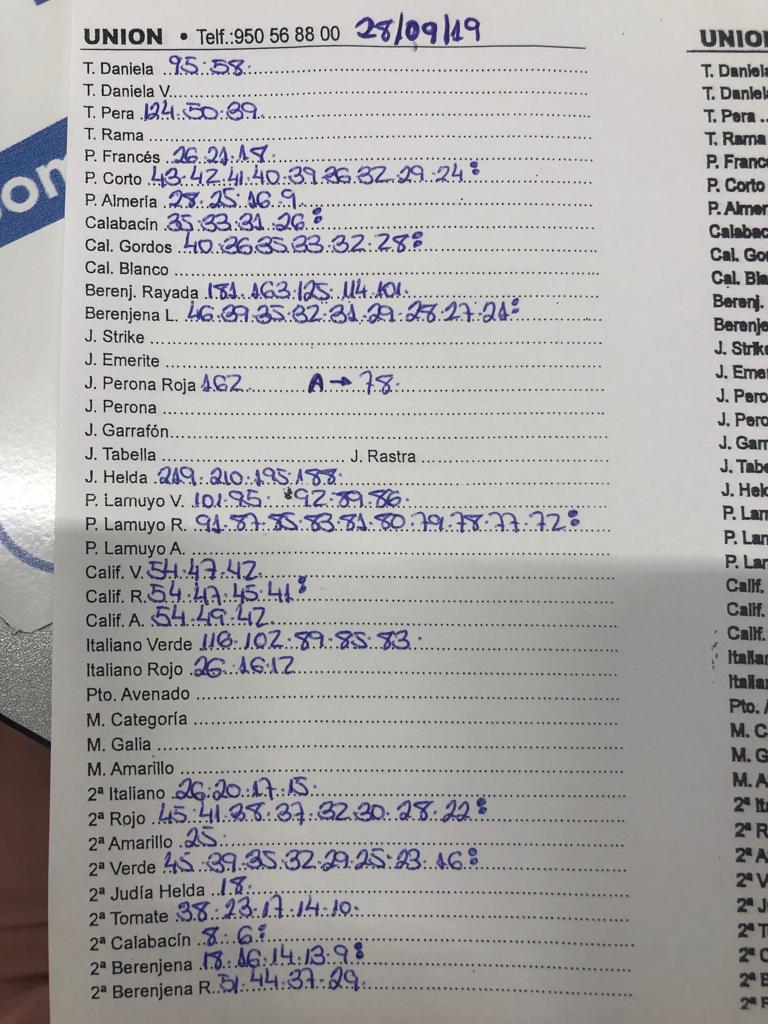 UNION • Telf.:950 56 88 00 28/09/19
T. Daniela 95.58.
T. Daniela V.
T. Pera 124.50.39.
T. Rama
P. Francés 26.21.18.
P. Corto 43.42.41.40.39.36.32.29.24
P. Almería 28.25.16.9
Calabacín 35.33.31.26
Cal. Gordos 40.36.35.33.32.28
Cal. Blanco
Berenj. Rayada 181.163.125.114.101.
Berenjena L. 46.39.35.32.31.29.28.27.21
J. Strike
J. Emerite
J. Perona Roja 162 A → 78.
J. Perona
J. Garrafón
J. Tabella J. Rastra
J. Helda 219.210.195.188.
P. Lamuyo V. 101.95. 92.89.86.
P. Lamuyo R. 91.87.85.83.81.80.79.78.77.72
P. Lamuyo A.
Calif. V. 54.47.42.
Calif. R. 54.47.45.41
Calif. A. 54.49.42.
Italiano Verde 102.89.85.83.
Italiano Rojo 26.16.12
Pto. Avenado
M. Categoría
M. Galia
M. Amarillo
2ª Italiano 26.20.17.15.
2ª Rojo 45.41.38.37.32.30.28.22
2ª Amarillo 25.
2ª Verde 45.39.35.32.29.25.23.16
2ª Judía Helda 18.
2ª Tomate 38.23.17.14.10.
2ª Calabacín 8.6
2ª Berenjena 18.16.14.13.9
2ª Berenjena R. 51.44.37.29.